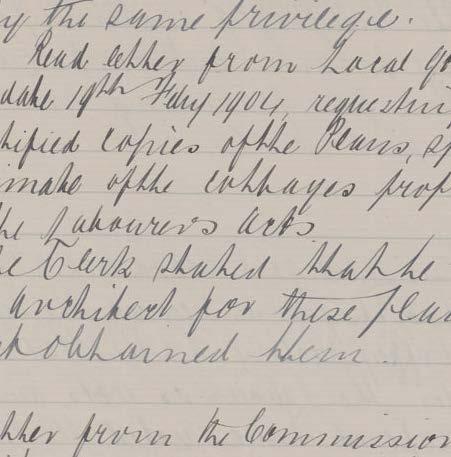 y the same privilege.
Read letter from Local Go
date 19th Feby 1904, requestin
tified copies of the Plans, sp
imate of the cottages prop
he Labourers acts
he Clerk stated that he
architect for these plan
obtained them.
tter from the Commission